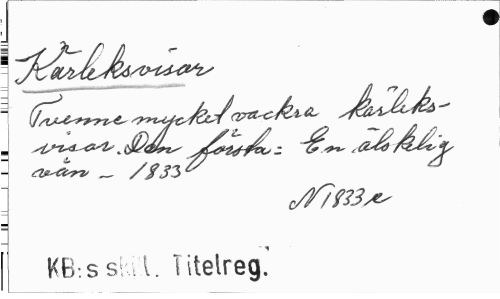 Kärleksvisor
Tvenne mycket vackra kärleks-
visor. Den första: En älsklig
vän - 1833
N 1833 e
KB:s skill. Titelreg.